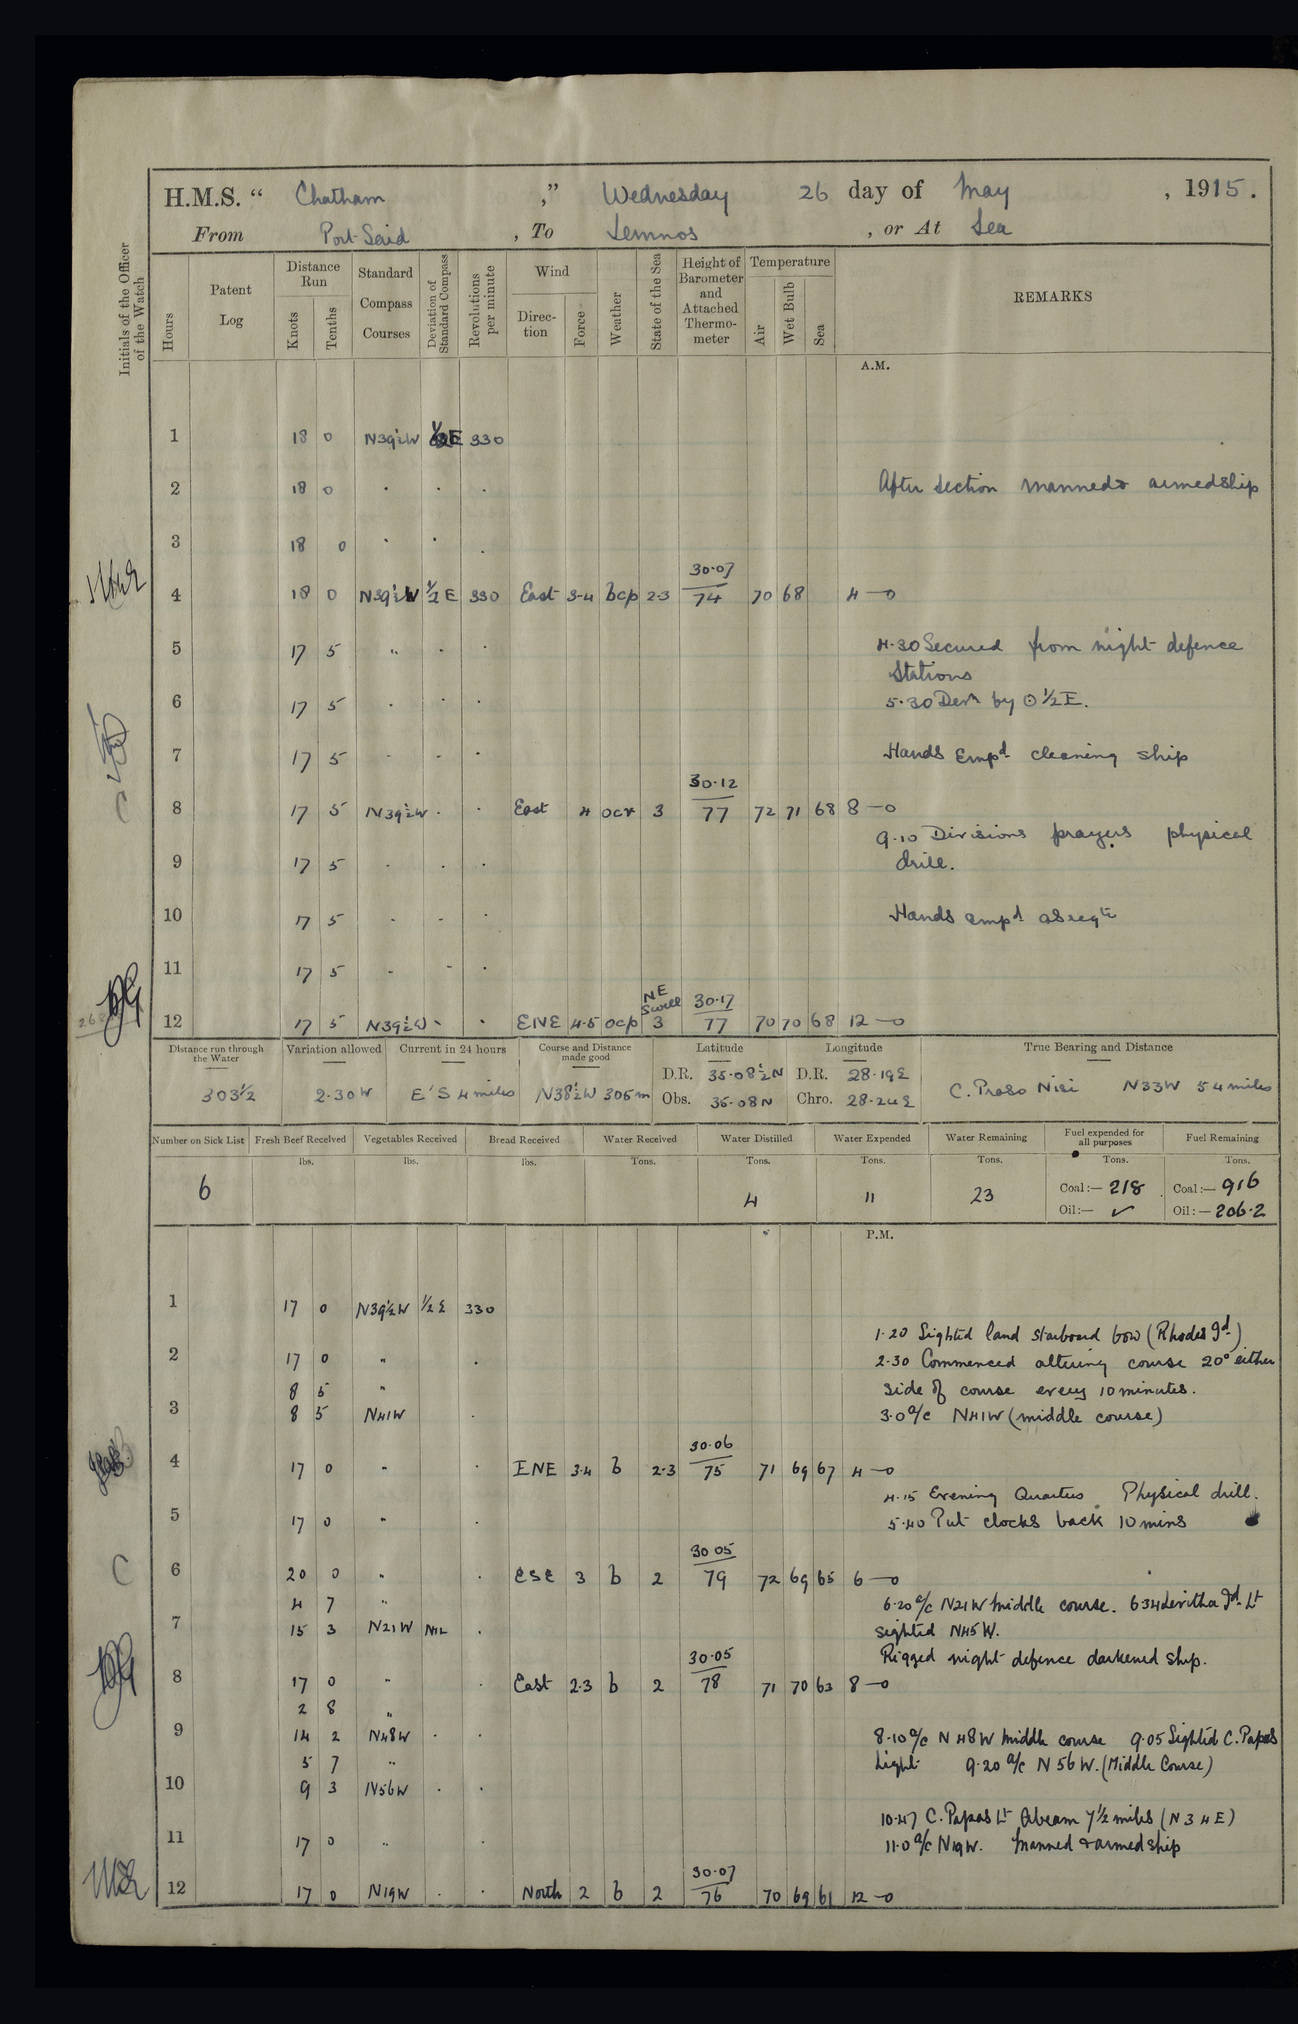 H.M.S. “ Chatham ,” Wednesday 26 day of May , 1915.
From Port Said , To Lemnos , or At Sea
Initials of the Officer of the Watch
Hours
Patent Log
Distance Run
Knots
Tenths
Standard Compass Courses
Deviation of Standard Compass
Revolutions per minute
Wind
Direc-tion
Force
Weather
State of the Sea
Height of Barometer and Attached Thermo-meter
Temperature
Air
Wet Bulb
Sea
REMARKS
A.M.
1 18 0 N39½W ½E 330
2 18 0 " " " After section manned & armed ship
3 18 0 " " "
30·07
4 18 0 N39½W ½E 330 East 3-4 bcp 2-3 74 70 68 4 —o
5 17 5 " " " 4·30 Secured from night defence
Stations
6 17 5 " " " 5·30 Devn by ⊙ ½E.
7 17 5 " " " Hands Empd cleaning ship
30·12
8 17 5 N39½W " " East 4 ocr 3 77 72 71 68 8 —o
9·10 Divisions prayers physical
9 17 5 " " " drill.
10 17 5 " " " Hands empd as reqte
11 17 5 " " "
NE Swell 30·17
12 17 5 N39½W " " ENE 4·5 ocp 3 77 70 70 68 12 —o
Distance run through the Water
Variation allowed
Current in 24 hours
Course and Distance made good
Latitude
Longitude
True Bearing and Distance
303½ 2·30W E'S 4 miles N38½W 305m
D.R. 35·08½N D.R. 28·19E
Obs. 35·08N Chro. 28·24E
C. Praso Nisi N33W 54 miles
Number on Sick List
Fresh Beef Received
Vegetables Received
Bread Received
Water Received
Water Distilled
Water Expended
Water Remaining
Fuel expended for all purposes
Fuel Remaining
lbs. lbs. lbs. Tons. Tons. Tons. Tons. Tons. Tons.
6 4 11 23
Coal:— 218 Coal:— 916
Oil:— ✓ Oil:— 206·2
P.M.
1 17 0 N39½W ½E 330
1·20 Sighted land starboard bow (Rhodes Id.)
2 17 0 " " 2·30 Commenced altering course 20° either
8 5 " side of course every 10 minutes.
3 8 5 N41W " 3·0 a/c N41W (middle course)
30·06
4 17 0 " " ENE 3·4 b 2·3 75 71 69 67 4 —o
4·15 Evening Quarters. Physical drill.
5 17 0 " " 5·40 Put clocks back 10 mins
30 05
6 20 0 " " ESE 3 b 2 79 72 69 65 6 —o
4 7 " 6·20 a/c N21W middle course. 6 34 Levitha Id. Lt
7 15 3 N21W NIL " sighted N45W.
Rigged night defence darkened ship.
30·05
8 17 0 " " East 2·3 b 2 78 71 70 63 8 —o
2 8 "
9 14 2 N48W " " 8·10 a/c N48W middle course 9·05 Sighted C. Papas
5 7 " Light 9·20 a/c N56W. (Middle Course)
10 9 3 N56W " "
10·47 C. Papas Lt Abeam 7½ miles (N34E)
11 17 0 " " 11·0 a/c N19W. Manned & armed ship
30·07
12 17 0 N19W " " North 2 b 2 76 70 69 61 12 —o